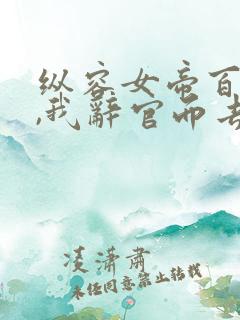 纵容女帝百
,我辭官而去
凌潇肃
未经同意禁止转载